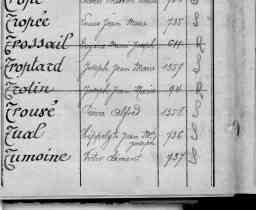 Tropée Louis Jean Marie 735
Trossail Eugène Marie Joseph 611
Troplard Joseph Jean Marie 1357
Trotin Joseph Jean Marie 94
Trousé Pierre Alfred 1358
Tual Hippolyte Jean M. Joseph 736
Tumoine Victor Clément 737